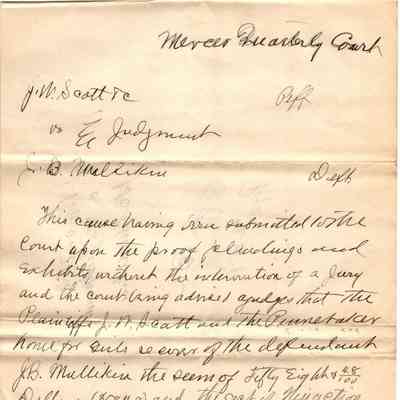 Mercer Quarterly Court
J. W. Scott &c Plff
vs Judgment
J. B. Mullikin Deft
This cause having been submitted to the
Court upon the proof, pleadings and
exhibits without the intervention of a Jury
and the court being advised adjudges that the
Plaintiffs J. W. Scott and the
home for girls recover of the defendant
J.B. Mullikin the sum of Fifty Eight & 48/100